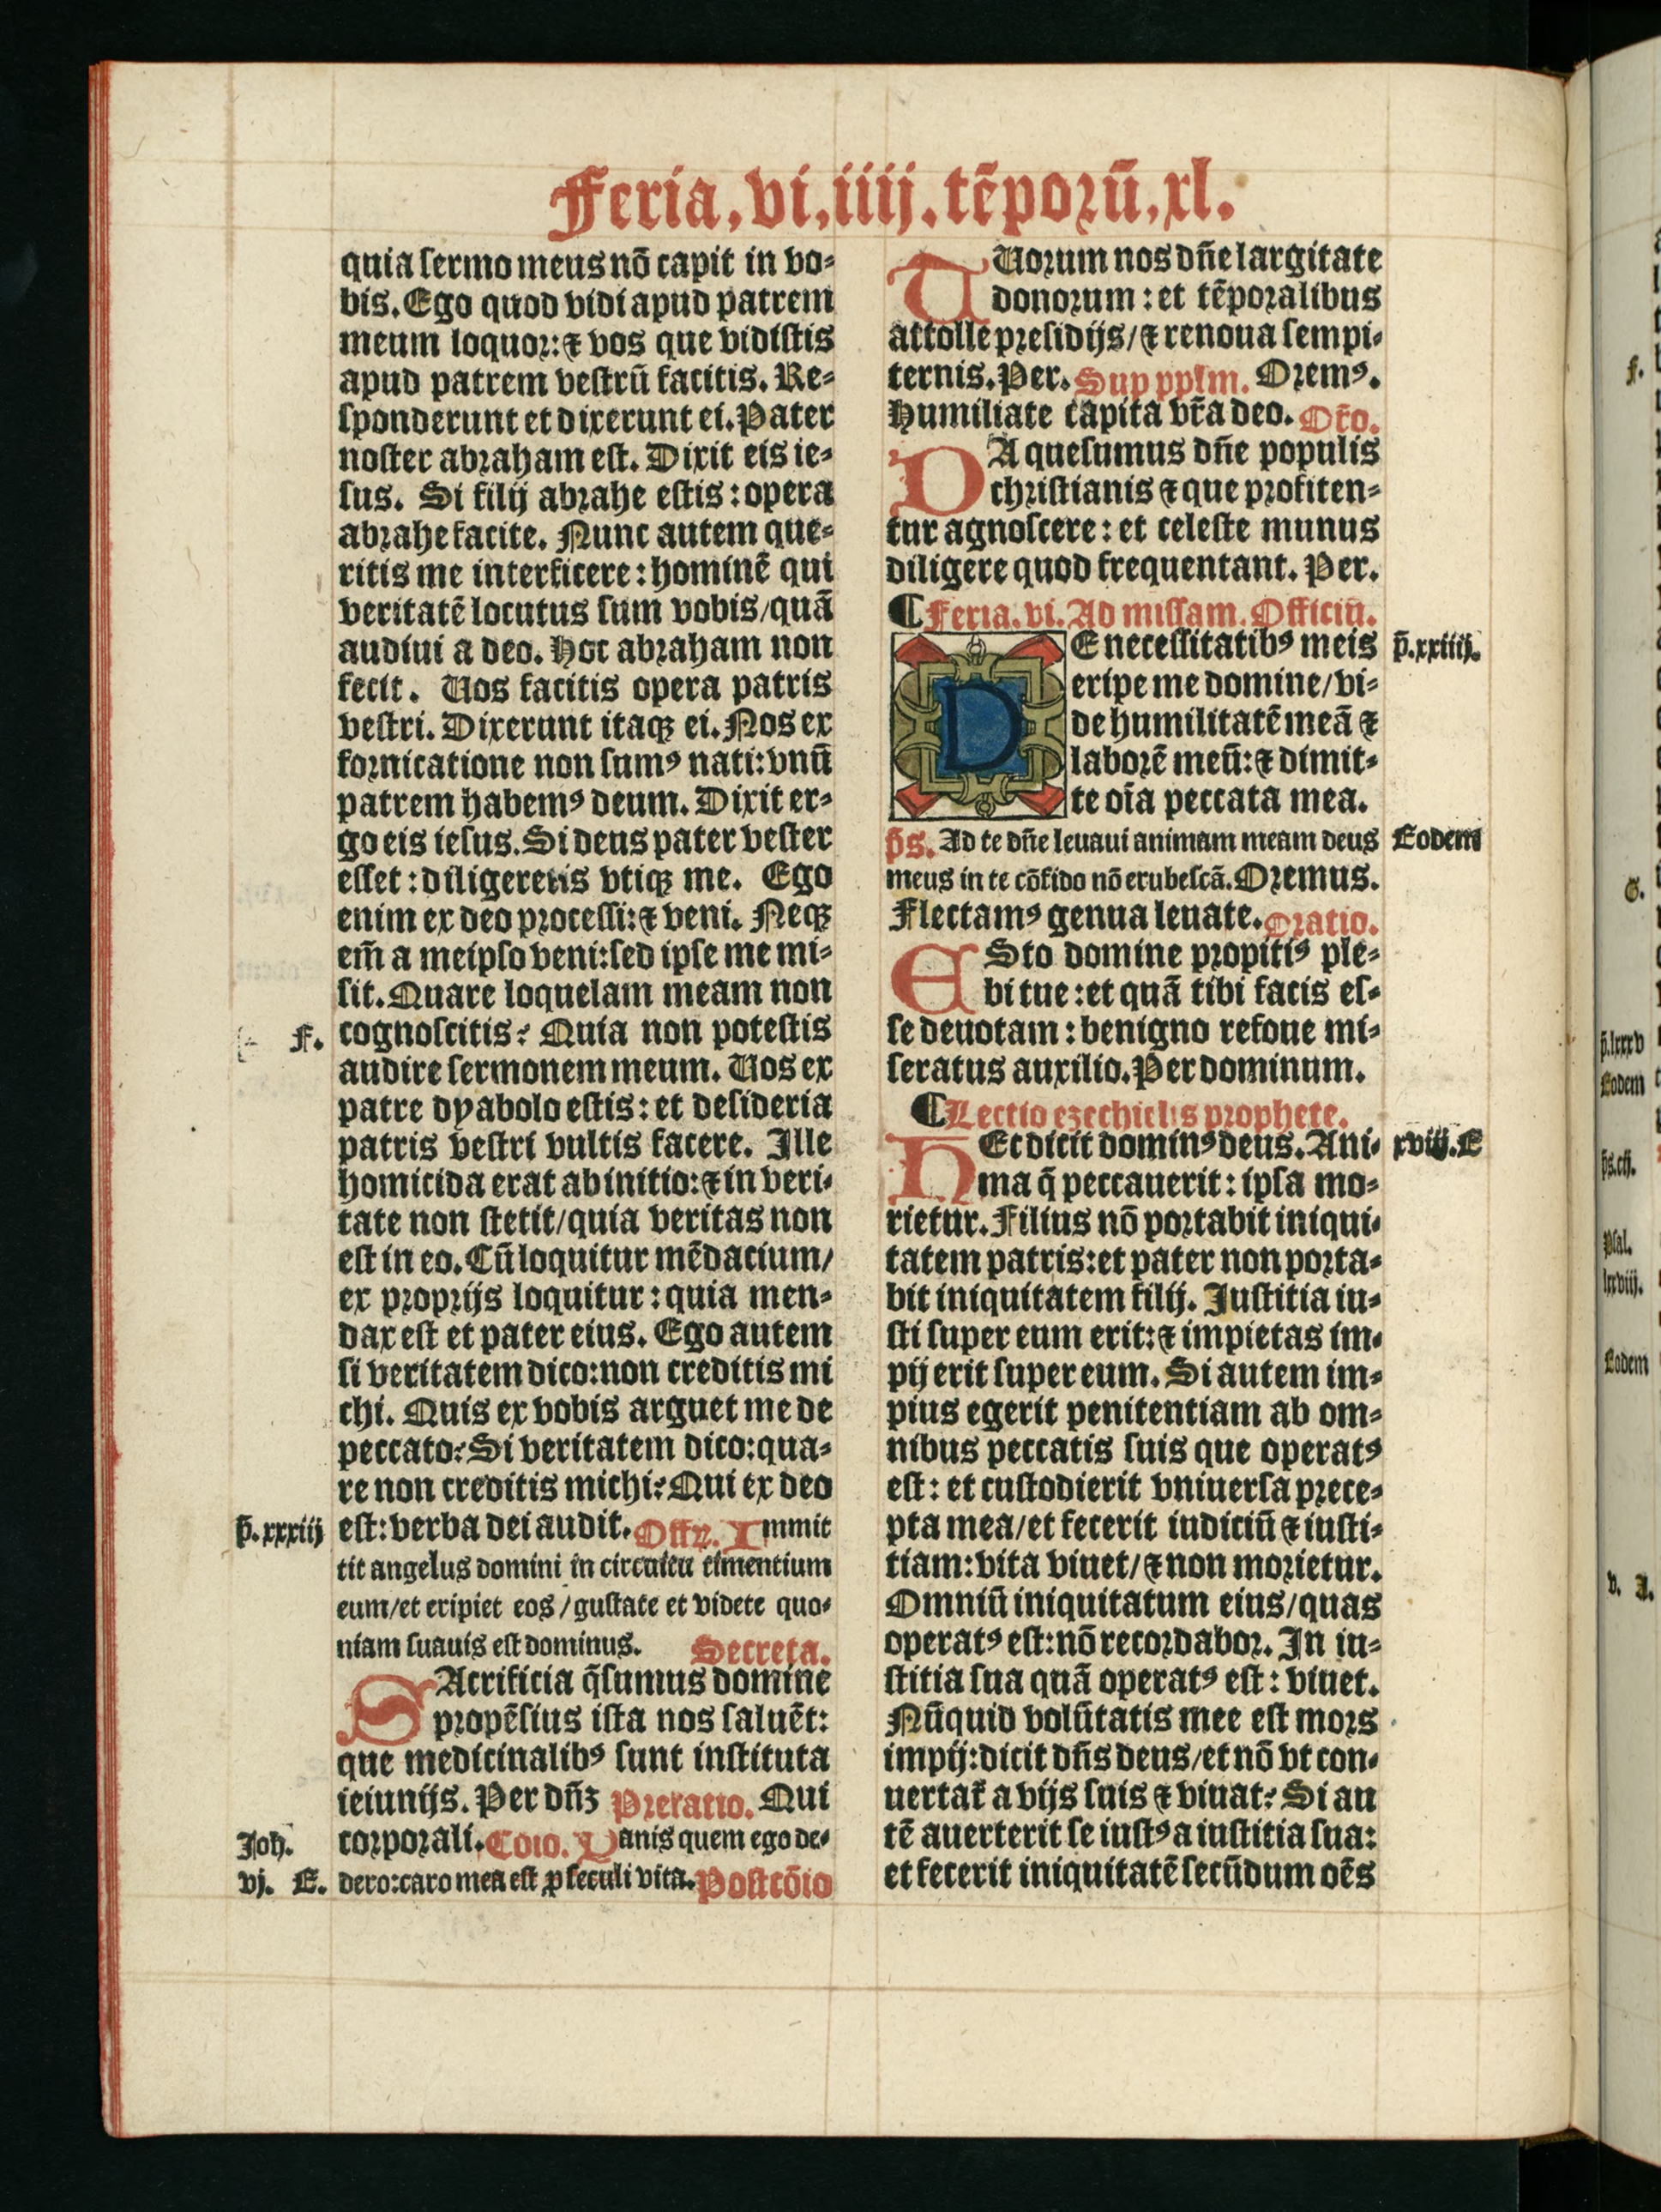 Feria.vi.iiij.tēporū.xl.
quia sermo meus nō capit in vo-
bis. Ego quod vidi apud patrem
meum loquor: ⁊ vos que vidistis
apud patrem vestrū facitis. Re-
sponderunt et dixerunt ei. Pater
noster abraham est. Dixit eis ie-
sus. Si filij abrahe estis: opera
abrahe facite. Nunc autem que-
ritis me interficere: hominē qui
veritatē locutus sum vobis/quā
audiui a deo. Hoc abraham non
fecit. Uos facitis opera patris
vestri. Dixerunt itaqꝫ ei. Nos ex
fornicatione non sumꝰ nati: vnū
patrem habemꝰ deum. Dixit er-
go eis iesus. Si deus pater vester
esset: diligeretis vtiqꝫ me. Ego
enim ex deo processi: ⁊ veni. Neqꝫ
em̄ a meipso veni: sed ipse me mi-
sit. Quare loquelam meam non
F. cognoscitis? Quia non potestis
audire sermonem meum. Uos ex
patre dyabolo estis: et desideria
patris vestri vultis facere. Ille
homicida erat ab initio: ⁊ in veri-
tate non stetit/quia veritas non
est in eo. Cū loquitur mēdacium/
ex proprijs loquitur: quia men-
dax est et pater eius. Ego autem
si veritatem dico: non creditis mi
chi. Quis ex vobis arguet me de
peccato? Si veritatem dico: qua-
re non creditis michi? Qui ex deo
p̄.xxxiij est: verba dei audit. Offr. Immit
tit angelus domini in circuitu timentium
eum/et eripiet eos/gustate et videte quo-
niam suauis est dominus. Secreta.
SAcrificia q̄sumus domine
propēsius ista nos saluēt:
que medicinalibꝰ sunt instituta
ieiunijs. Per dn̄ꝫ Prefatio. Qui
Joh. corporali. Coīo. Panis quem ego de-
vj. E. dero: caro mea est ꝓ seculi vita. Postcōio
TUorum nos dn̄e largitate
donorum: et tēporalibus
attolle presidijs/⁊ renoua sempi-
ternis. Per. Sup pplm. Oremꝰ.
Humiliate capita vr̄a deo. Or̄o.
DA quesumus dn̄e populis
christianis ⁊ que profiten-
tur agnoscere: et celeste munus
diligere quod frequentant. Per.
¶ Feria. vi. Ad missam. Officiū.
DE necessitatibꝰ meis p̄.xxiiij.
eripe me domine/vi-
de humilitatē meā ⁊
laborē meū: ⁊ dimit-
te oīa peccata mea.
p̄s. Ad te dn̄e leuaui animam meam deus Eodem
meus in te cōfido nō erubescā. Oremus.
Flectamꝰ genua leuate. Oratio.
ESto domine propitiꝰ ple-
bi tue: et quā tibi facis es-
se deuotam: benigno refoue mi-
seratus auxilio. Per dominum.
¶ Lectio ezechielis prophete.
HEc dicit dominꝰ deus. Ani- xviij. E
ma q̄ peccauerit: ipsa mo-
rietur. Filius nō portabit iniqui-
tatem patris: et pater non porta-
bit iniquitatem filij. Iustitia iu-
sti super eum erit: ⁊ impietas im-
pij erit super eum. Si autem im-
pius egerit penitentiam ab om-
nibus peccatis suis que operatꝰ
est: et custodierit vniuersa prece-
pta mea/et fecerit iudiciū ⁊ iusti-
tiam: vita viuet/⁊ non morietur.
Omniū iniquitatum eius/quas
operatꝰ est: nō recordabor. In iu-
stitia sua quā operatꝰ est: viuet.
Nūquid volūtatis mee est mors
impij: dicit dn̄s deus/et nō vt con-
uertat̄ a vijs suis ⁊ viuat? Si au
tē auerterit se iustꝰ a iustitia sua:
et fecerit iniquitatē secūdum oēs
f.
G.
p̄.lxxxv
Eodem
p̄s.cij.
Psal.
lxxviij.
Eodem
v. A.